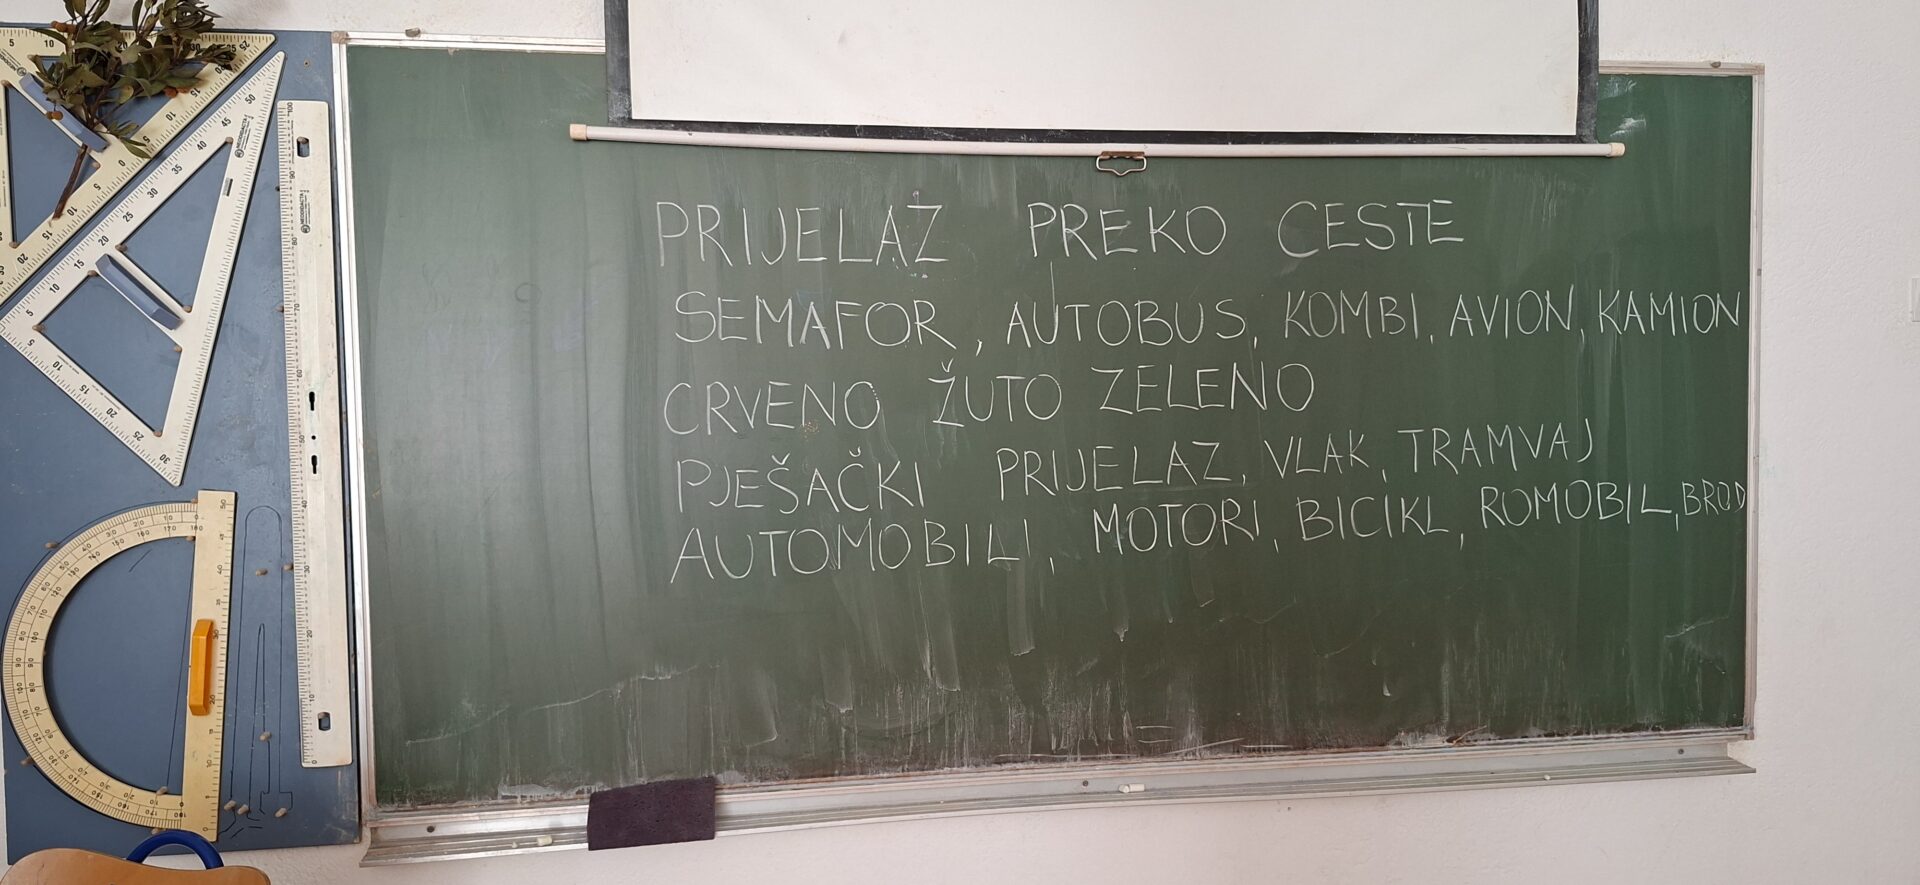 PRIJELAZ PREKO CESTE
SEMAFOR, AUTOBUS, KOMBI, AVION, KAMION
CRVENO ŽUTO ZELENO
PJEŠAČKI PRIJELAZ, VLAK, TRAMVAJ
AUTOMOBILI, MOTORI, BICIKL, ROMOBIL, BROD